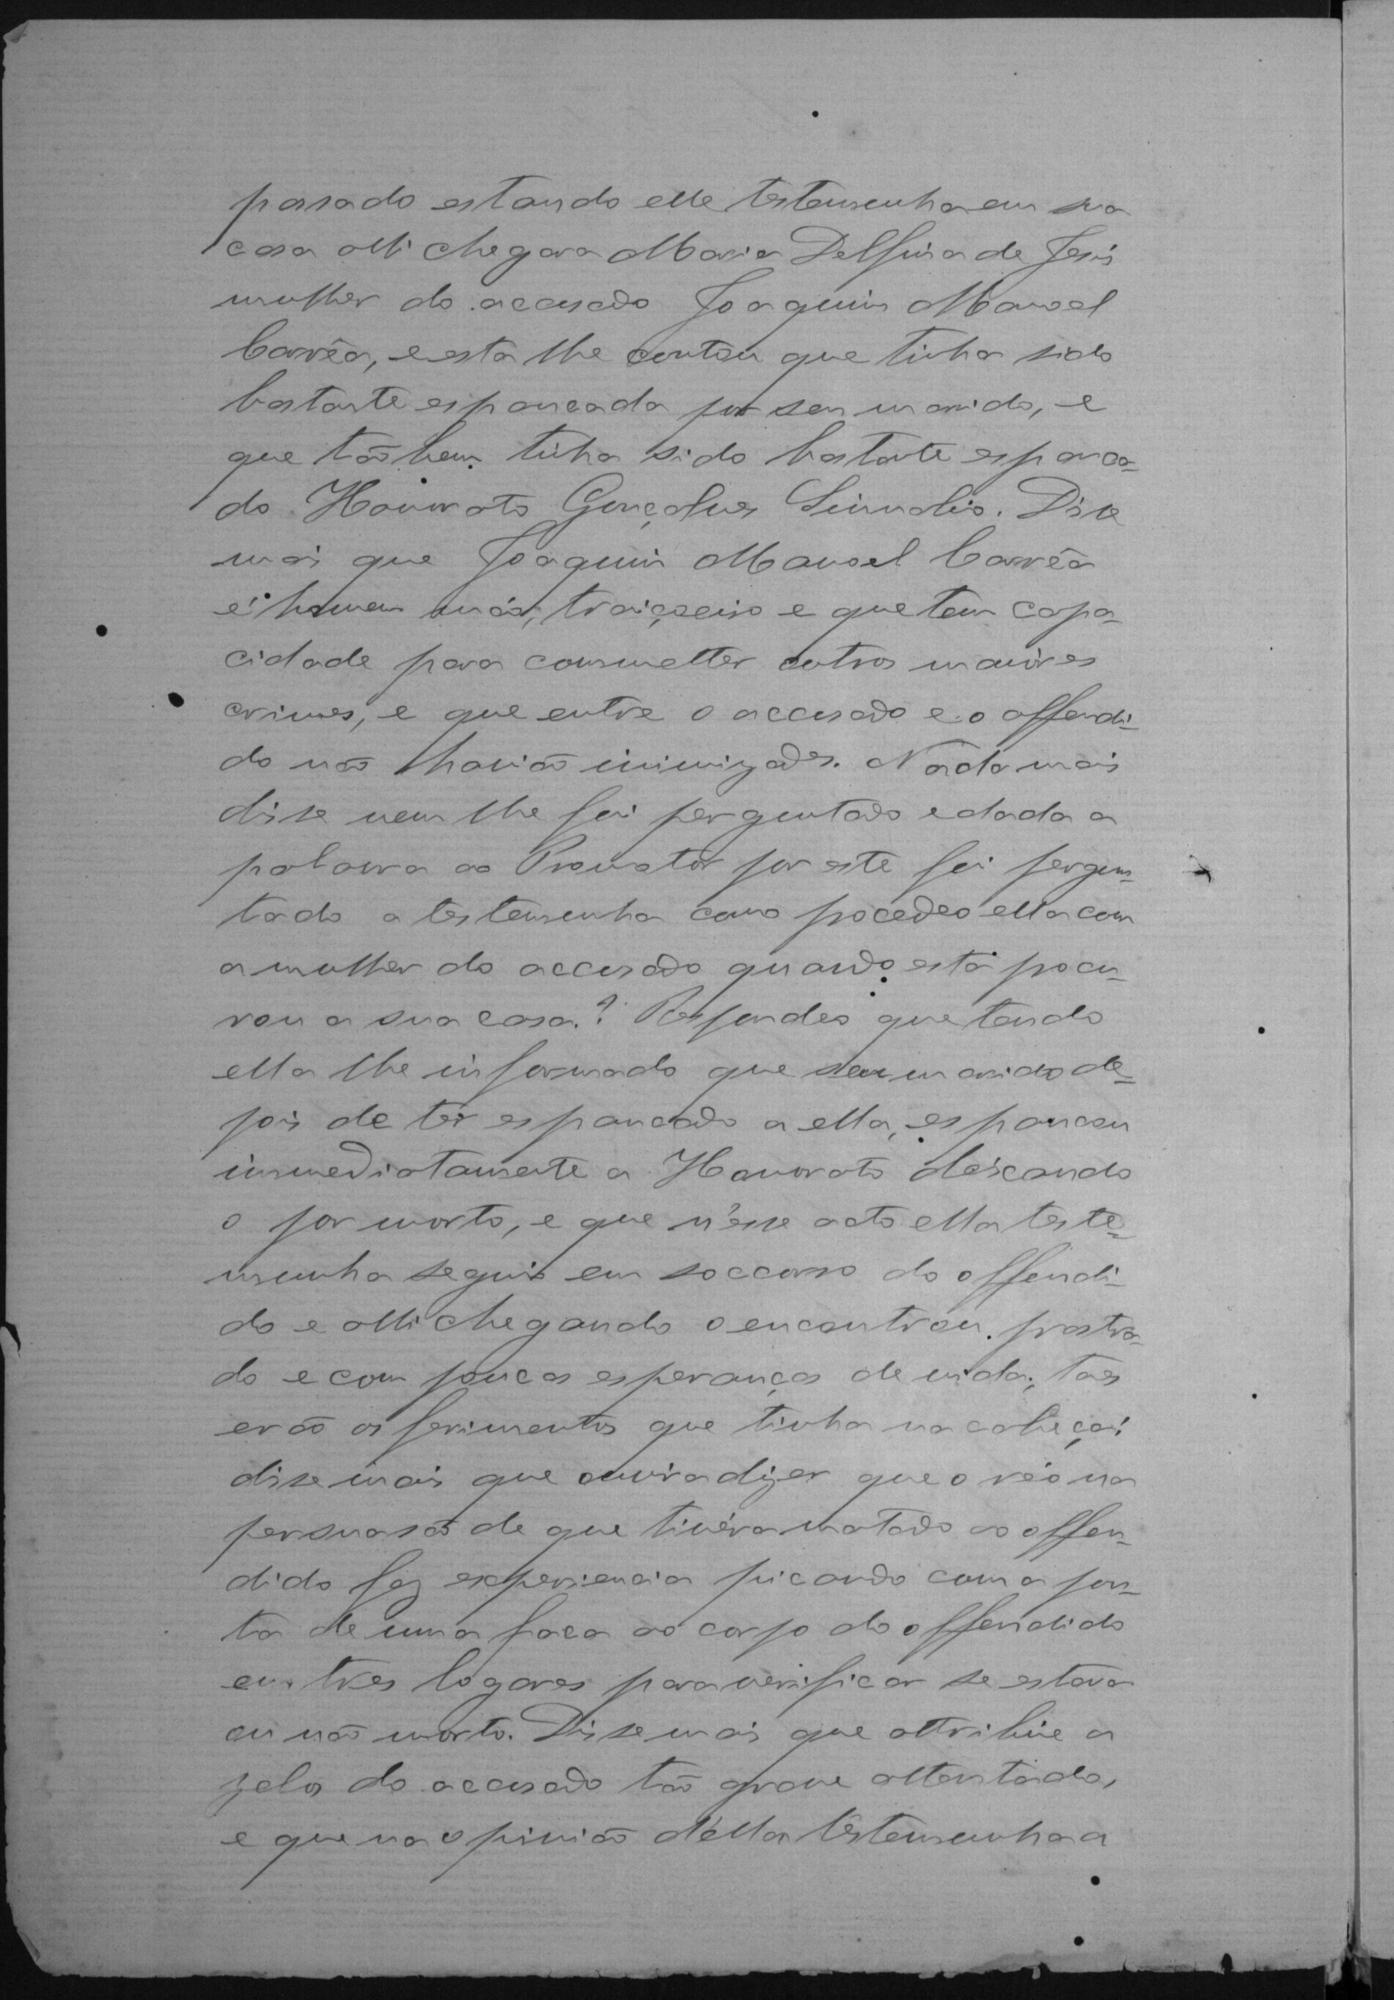 passado estando elle testemunha em sua
casa alli chegara Maria Delfina de Jesus
mulher do accusado Joaquim Manoel
Corrêa, e esta lhe contou que tinha sido
bastante espancada por seu marido, e
que tãobem tinha sido bastante espanca-
do Honorato Gonçalves. Disse
mais que Joaquim Manoel Corrêa
é homem máo, traiçoeiro e que tem capa-
cidade para commetter outros maiores
crimes, e que entre o accusado e o offendi-
do não havião inimizades. Nada mais
disse nem lhe foi perguntado e dada a
palavra ao Promotor por este foi pergun-
tado a testemunha como procedeo ella com
a mulher do accusado quando esta procu-
rou a sua casa? Respondeo que tendo
ella lhe informado que seu marido de-
pois de ter espancado a ella, espancou
immediatamente a Honorato deixando
o por morto, e que n'esse acto ella teste-
munha seguio em soccorro do offendi-
do e alli chegando o encontrou prostra-
do e com poucas esperanças de vida; taes
erão os ferimentos que tinha na cabeça;
disse mais que ouvira dizer que o réo na
persuasão de que tivéra matado ao offen-
dido fez experiencia picando com a pon-
ta de uma faca ao corpo do offendido
em tres logares para verificar se estava
ou não morto. Disse mais que attribue a
zelos do accusado tão grave attentado,
e que na opinião d'ella testemunha a